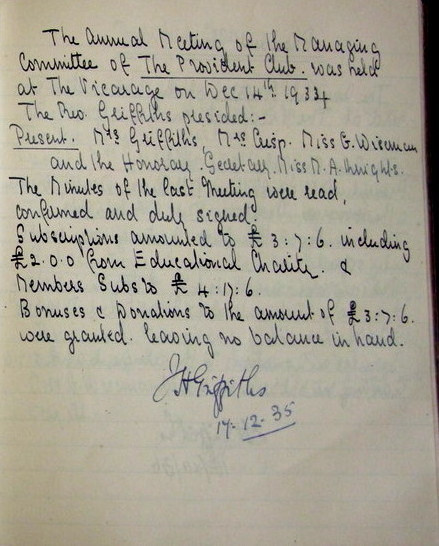 The Annual Meeting of the Managing
Committee of The Provident Club. was held
at The Vicarage on Dec 14th 1934
The Rev Griffiths presided:-
Present. Mrs Griffiths, Mrs Cusp. Miss G. Wiseman
and the Honorary Secretary. Miss M. A. Knights.
The Minutes of the last Meeting were read,
confirmed and duly signed.
Subscriptions amounted to £3:7:6. including
£2.0.0 from Educational Charity. &
Members Subs to £4:17:6.
Bonuses & Donations to the amount of £3:7:6.
were granted. leaving no balance in hand.
J H Griffiths
17-12-35